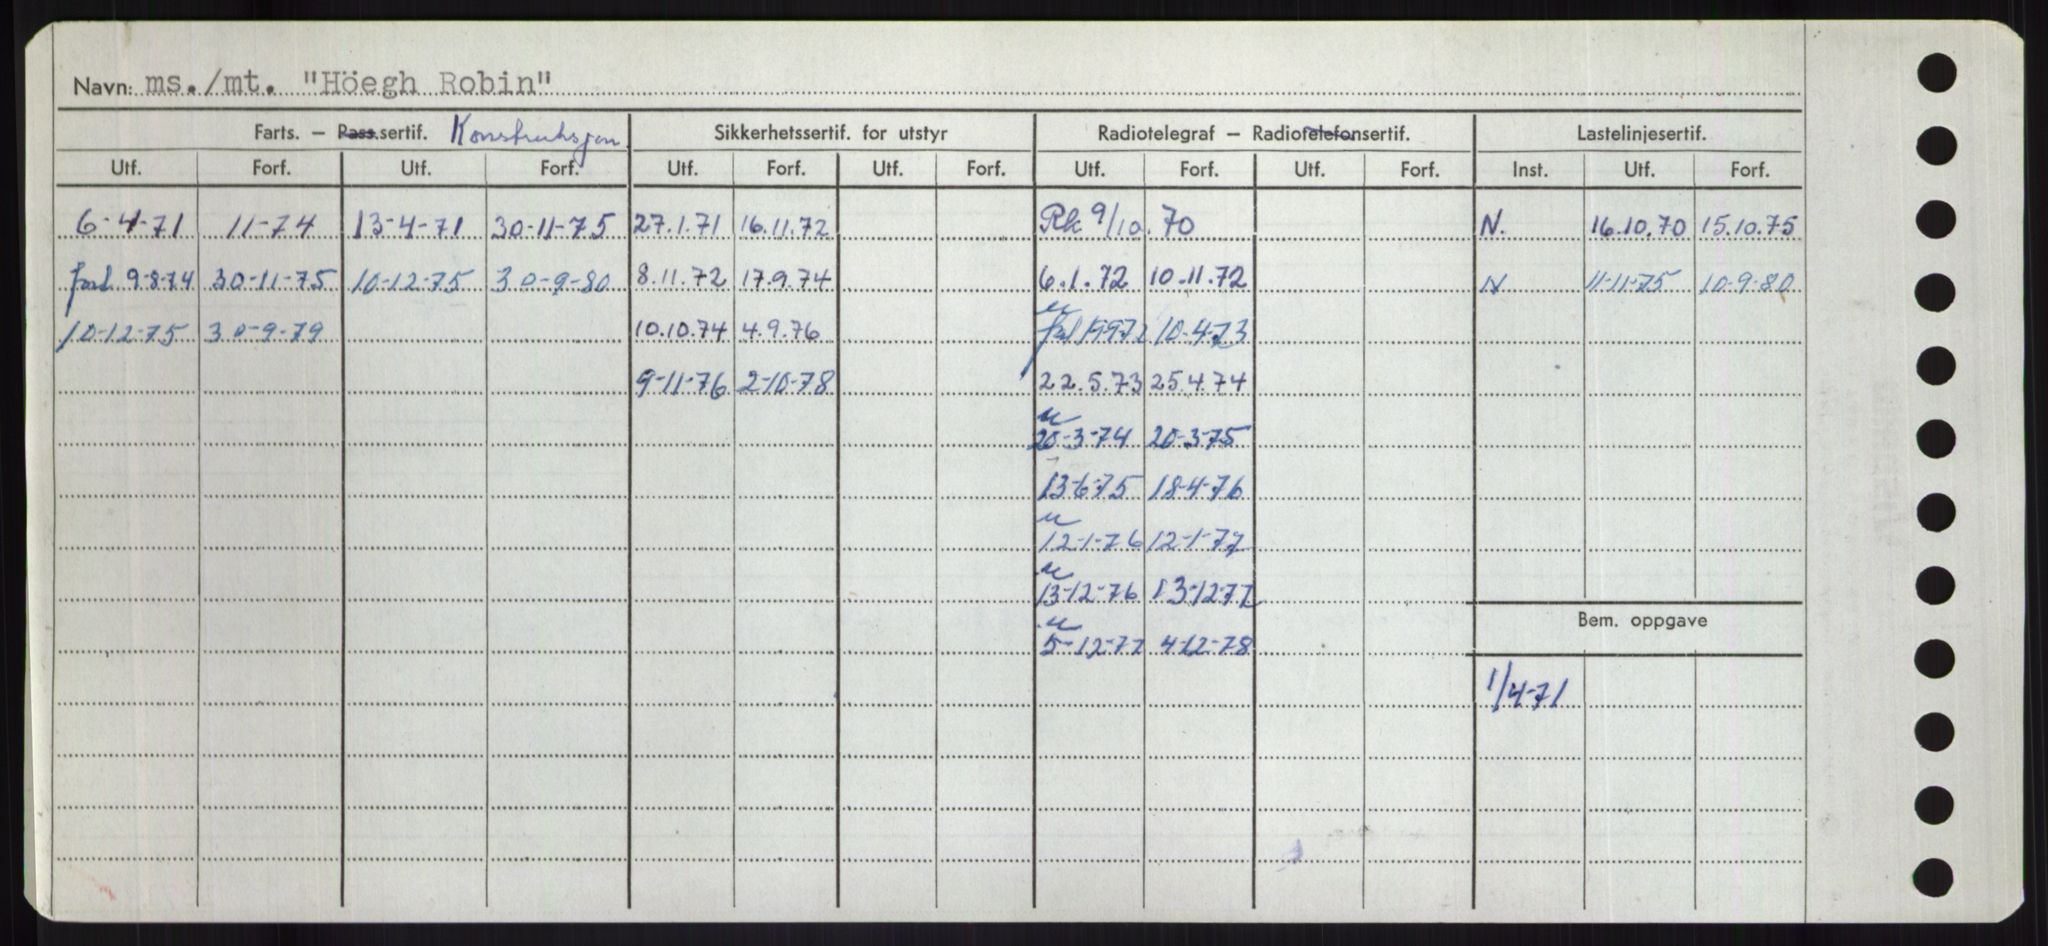 Navn: ms./mt. "Höegh Robin"
Farts. – Pass.sertif. Konstruksjon Sikkerhetssertif. for utstyr Radiotelegraf – Radiotelefonsertif. Lastelinjesertif.
Utf. Forf. Utf. Forf. Utf. Forf. Utf. Forf. Utf. Forf. Utf. Forf. Inst. Utf. Forf.
6-4-71 11-74 13-4-71 30-11-75 27.1.71 16.11.72 Rk 9/10.70 N. 16.10.70 15.10.75
forl. 9-8-74 30-11-75 10-12-75 30-9-80 8.11.72 17.9.74 6.1.72 10.11.72 N 11-11-75 10-9-80
10-12-75 30-9-79 10.10.74 4.9.76 10-4-73
9-11-76 2-10-78 22.5.73 25.4.74
u
20-3-74 20-3-75
13-6-75 18-4-76
u
12-1-76 12-1-77
u
13-12-76 13-12-77
u
5-12-77 4-12-78
Bem. oppgave
1/4-71